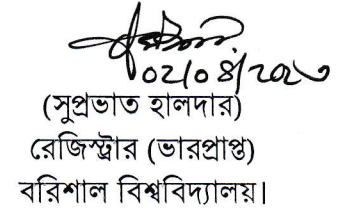 ০২/০৪/২০২৩
(সুপ্রভাত হালদার)
রেজিস্ট্রার (ভারপ্রাপ্ত)
বরিশাল বিশ্ববিদ্যালয়।